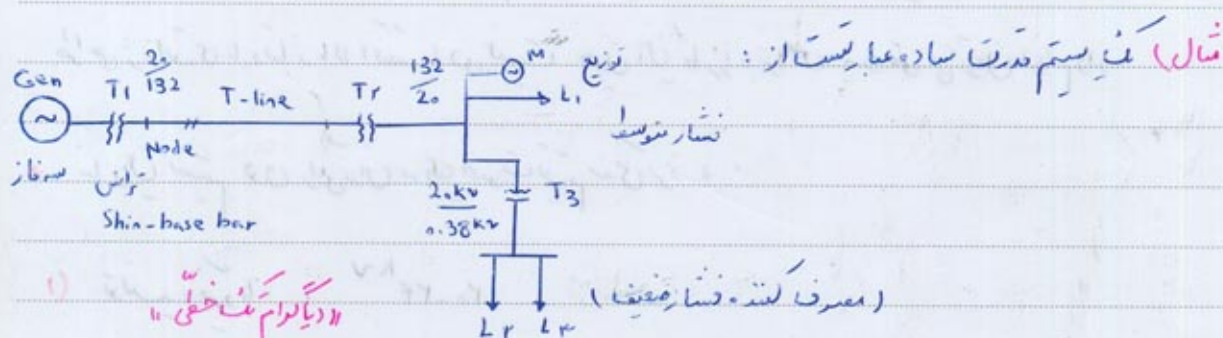 مثال) یک سیستم قدرت ساده عبارتست از :
Gen
T1
20/132
T-line
T2
132/20
M
توزیع
L1
Node
فشار متوسط
سه فاز
ترانس
Shin-base bar
20kv/0.38kv
T3
(مصرف کننده فشار ضعیف)
"دیاگرام تک خطی"
L2
L3